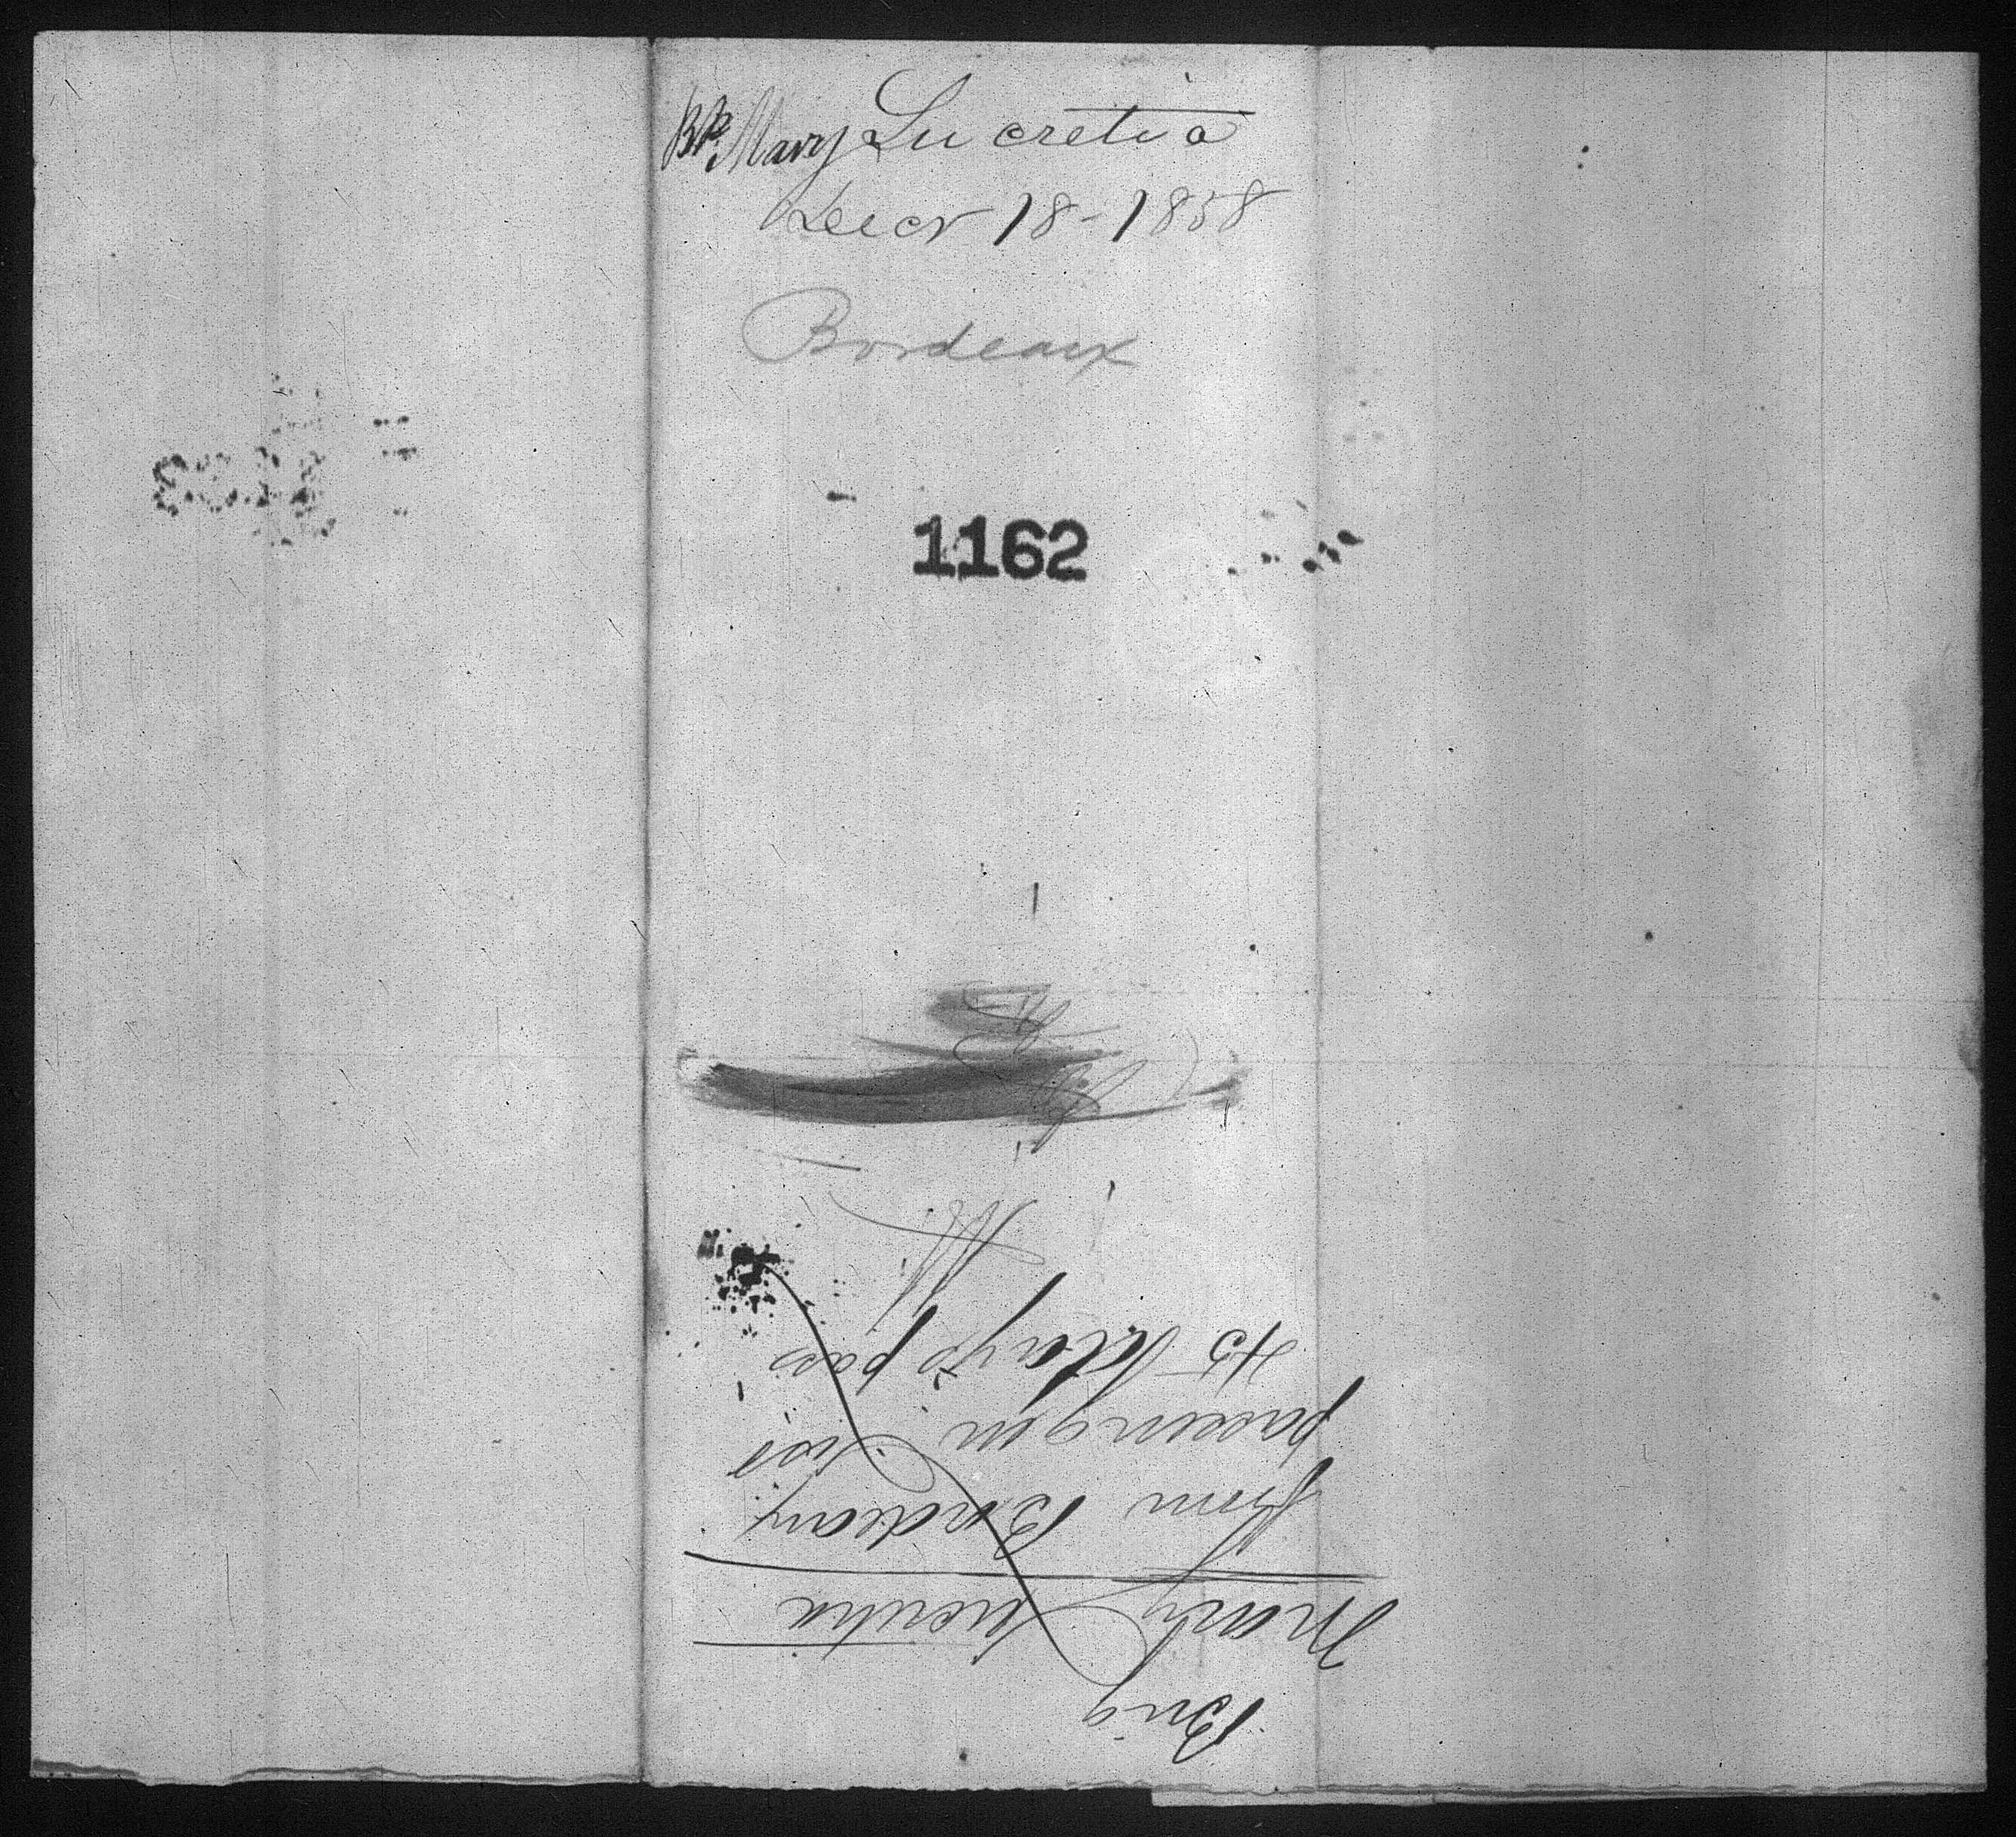 Bk Mary Lucretia
Decr 18 - 1858
Bordeaux
1162
Brig
Mary Lucretia
from Bordeaux
passengers
45 pass